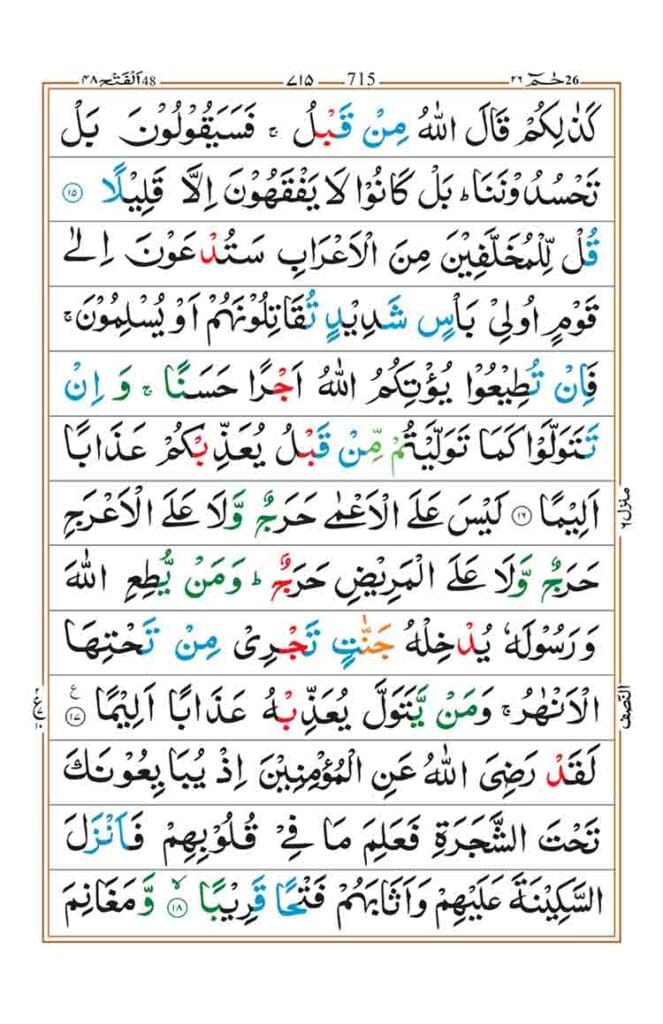 حٰمٓ 26 ٢٦ 715 ٧١٥ اَلْفَتْح 48 ٤٨
كَذٰلِكُمْ قَالَ اللّٰهُ مِنْ قَبْلُ ۚ فَسَيَقُوْلُوْنَ بَلْ
تَحْسُدُوْنَنَا ؕ بَلْ كَانُوْا لَا يَفْقَهُوْنَ اِلَّا قَلِيْلًا ۝١٥
قُلْ لِّلْمُخَلَّفِيْنَ مِنَ الْاَعْرَابِ سَتُدْعَوْنَ اِلٰى
قَوْمٍ اُولِيْ بَاْسٍ شَدِيْدٍ تُقَاتِلُوْنَهُمْ اَوْ يُسْلِمُوْنَ ۚ
فَاِنْ تُطِيْعُوْا يُؤْتِكُمُ اللّٰهُ اَجْرًا حَسَنًا ۚ وَ اِنْ
تَتَوَلَّوْا كَمَا تَوَلَّيْتُمْ مِّنْ قَبْلُ يُعَذِّبْكُمْ عَذَابًا
اَلِيْمًا ۝١٦ لَيْسَ عَلَى الْاَعْمٰى حَرَجٌ وَّلَا عَلَى الْاَعْرَجِ
منزل ٦
حَرَجٌ وَّلَا عَلَى الْمَرِيْضِ حَرَجٌ ؕ وَمَنْ يُّطِعِ اللّٰهَ
وَرَسُوْلَهٗ يُدْخِلْهُ جَنّٰتٍ تَجْرِيْ مِنْ تَحْتِهَا
الْاَنْهٰرُ ۚ وَمَنْ يَّتَوَلَّ يُعَذِّبْهُ عَذَابًا اَلِيْمًا ۝١٧ ع
النّصف
لَقَدْ رَضِيَ اللّٰهُ عَنِ الْمُؤْمِنِيْنَ اِذْ يُبَايِعُوْنَكَ
تَحْتَ الشَّجَرَةِ فَعَلِمَ مَا فِيْ قُلُوْبِهِمْ فَاَنْزَلَ
السَّكِيْنَةَ عَلَيْهِمْ وَاَثَابَهُمْ فَتْحًا قَرِيْبًا ۝١٨ۙ وَّمَغَانِمَ